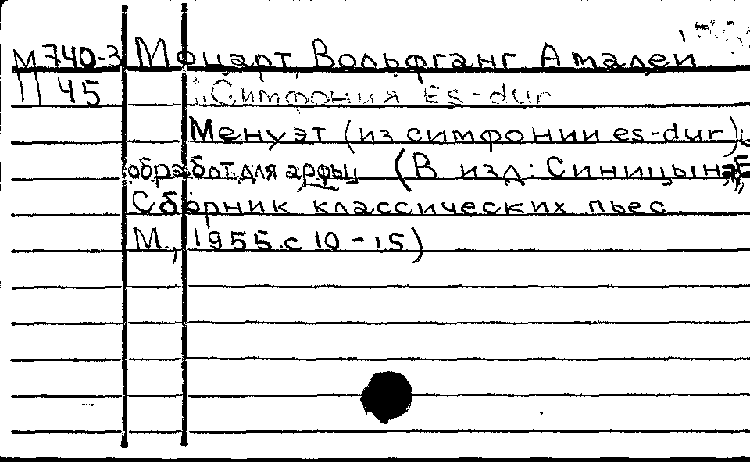 М740-3 Моцарт, Вольфганг Амадеи
П 45 „Симфония Es-dur
Менуэт (из симфонии es-dur),
обработ. для арфы (В изд: Синицына
Сборник классических пьес
М., 1955. с 10-15)